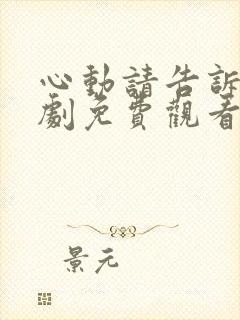 心動請告訴
劇免費觀看
景元